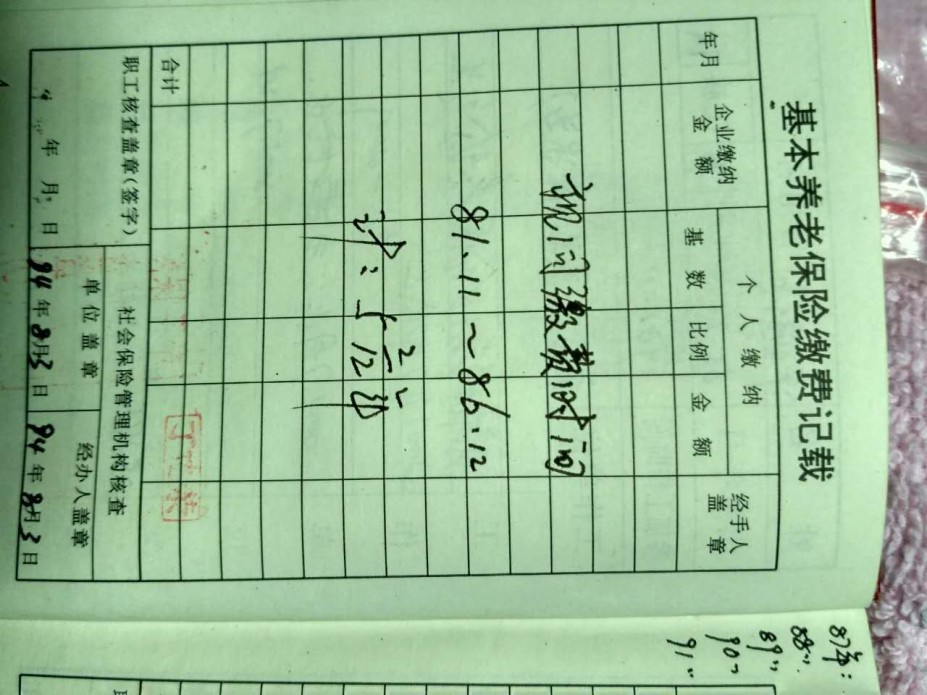 基本养老保险缴费记载
年月
企业缴纳
金 额
个 人 缴 纳
基 数
比例
金 额
经手人
盖 章
视同缴费时间
81.11~86.12
计：5 2/12
合计
职工核查盖章(签字)
年 月 日
社会保险管理机构核查
单 位 盖 章
94年8月3日
经办人盖章
94年8月3日
87年：
88〃
89〃
90〃
91〃